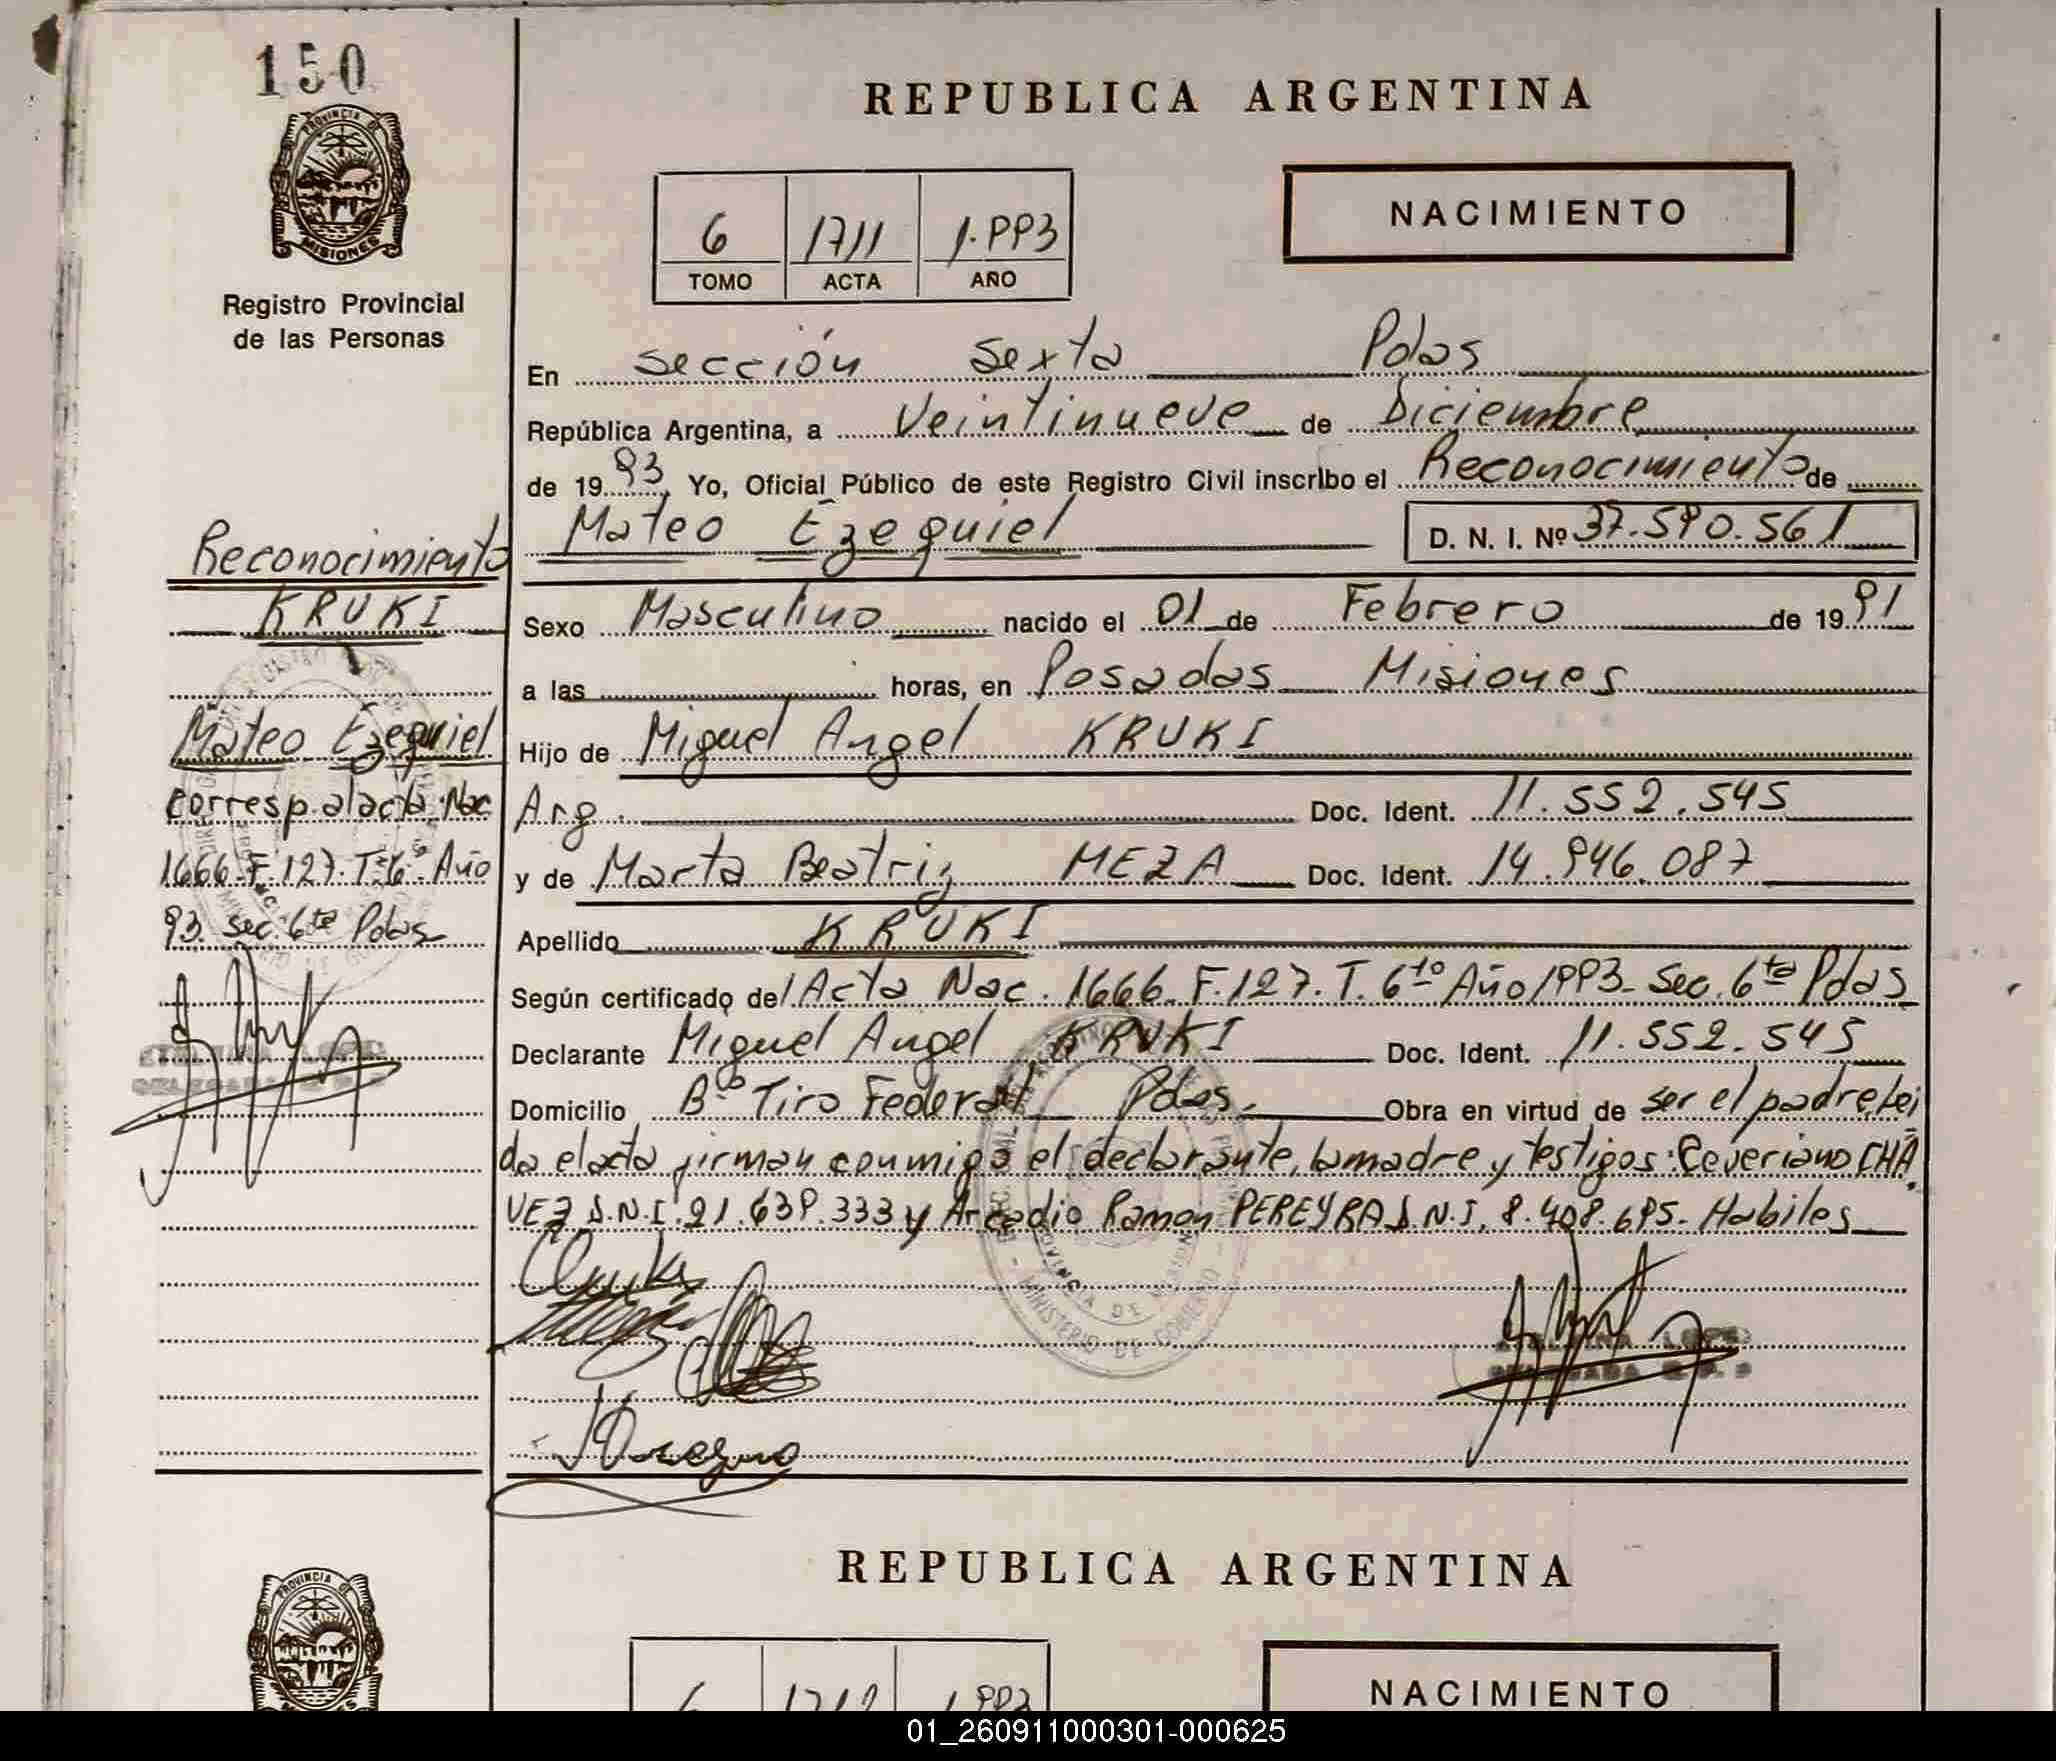 150
REPUBLICA ARGENTINA
PROVINCIA DE
MISIONES
NACIMIENTO
6 1711 1.993
TOMO ACTA AÑO
Registro Provincial
de las Personas
En sección Sexta Pdas
República Argentina, a Veintinueve de Diciembre
de 1993, Yo, Oficial Público de este Registro Civil inscribo el Reconocimiento de
Mateo Ezequiel D. N. I. Nº 37.590.561
Reconocimiento
KRUKI
Mateo Ezequiel
corresp. al acta Nac
1666 F. 127. T. 6º Año
93. sec. 6ta Pdas
Sexo Masculino nacido el 01 de Febrero de 1991
a las horas, en Posadas Misiones
Hijo de Miguel Angel KRUKI
Arg. Doc. Ident. 11.552.545
y de Marta Beatriz MEZA Doc. Ident. 14.946.087
Apellido KRUKI
Según certificado del Acta Nac. 1666. F. 127. T. 6to Año 1993. Sec. 6ta Pdas
Declarante Miguel Angel KRUKI Doc. Ident. 11.552.545
Domicilio Bº Tiro Federal Pdas. Obra en virtud de ser el padre, Lei
da el acta firman conmigo el declarante, la madre y testigos: Ceveriano CHA
VEZ D.N.I. 21.639.333 y Arcadio Ramon PEREYRA D.N.I. 8.408.695. Habiles
PROVINCIA DE MISIONES
MINISTERIO DE GOBIERNO
REPUBLICA ARGENTINA
PROVINCIA DE
NACIMIENTO
6 1712 1.993
01_260911000301-000625